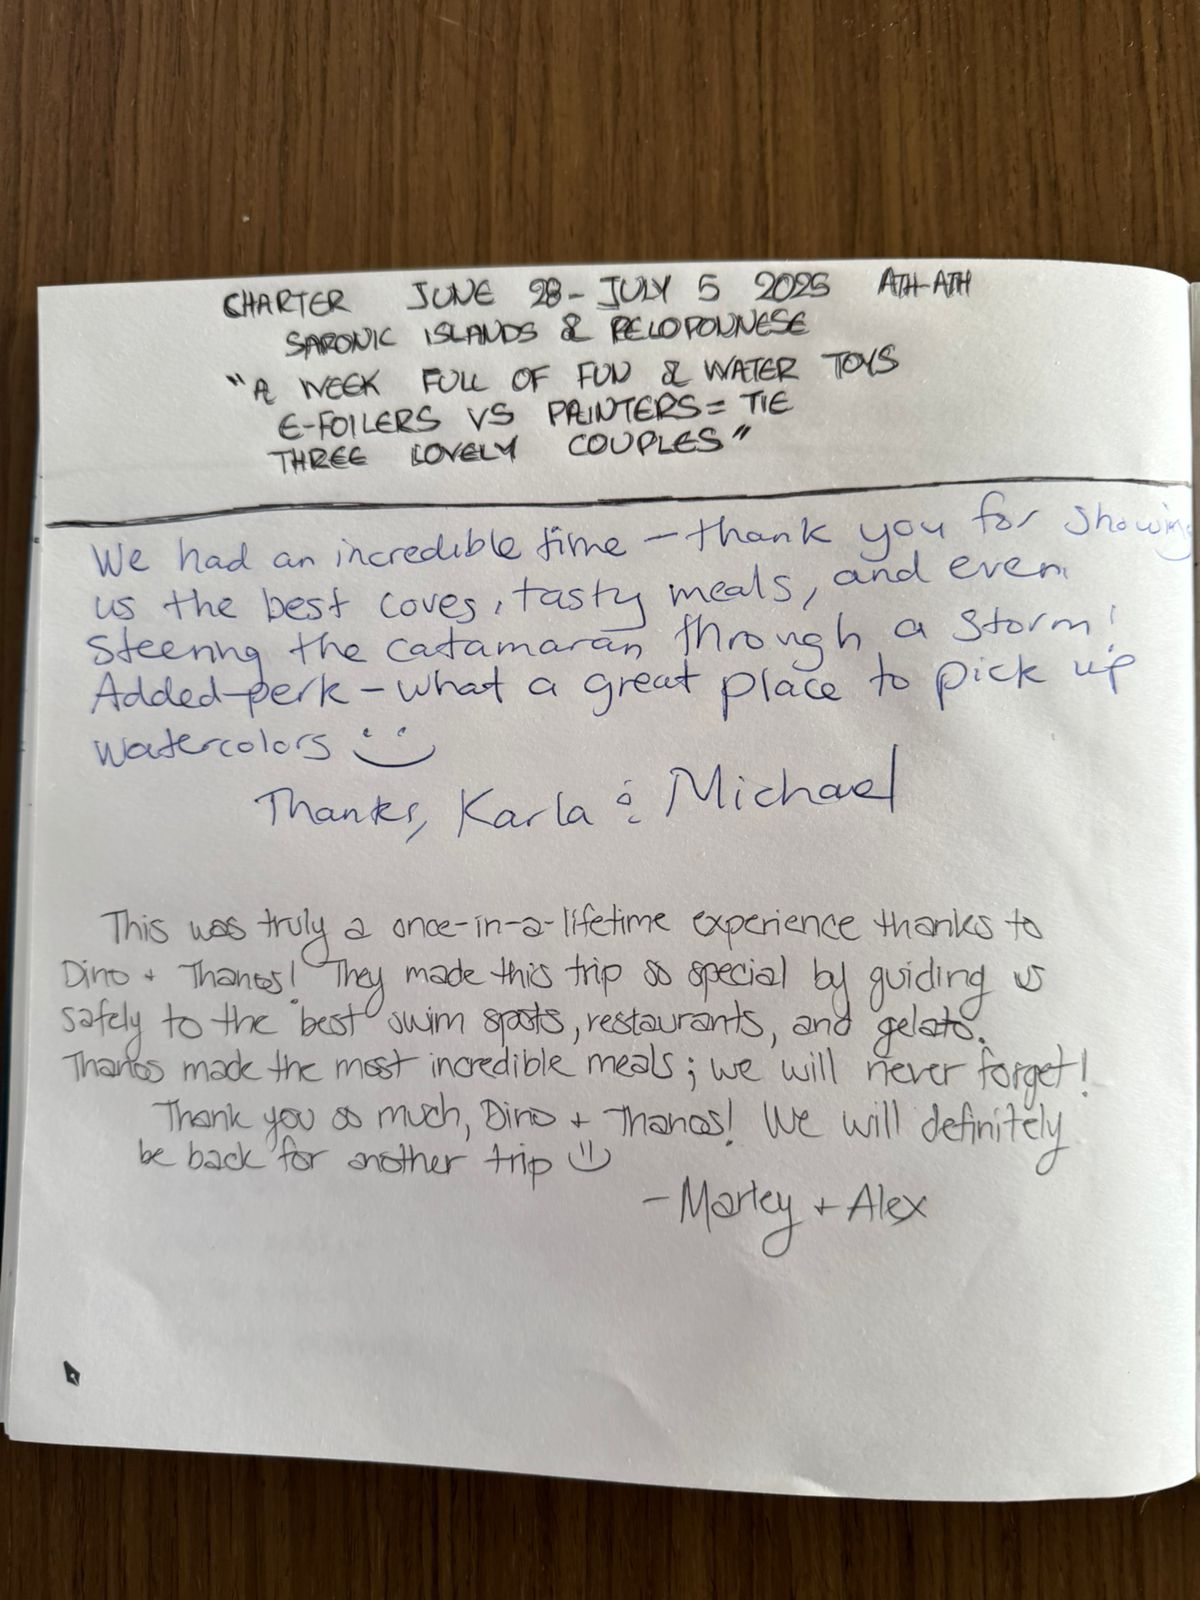 CHARTER JUNE 28 - JULY 5 2025 ATH-ATH
SARONIC ISLANDS & PELOPONNESE
"A WEEK FULL OF FUN & WATER TOYS
E-FOILERS VS PAINTERS = TIE
THREE LOVELY COUPLES"
We had an incredible time - thank you for showing
us the best coves, tasty meals, and even
steering the catamaran through a storm!
Added perk - what a great place to pick up
watercolors
Thanks, Karla & Michael
This was truly a once-in-a-lifetime experience thanks to
Dino + Thanos! They made this trip so special by guiding us
safely to the best swim spots, restaurants, and gelato.
Thanos made the most incredible meals; we will never forget!
Thank you so much, Dino + Thanos! We will definitely
be back for another trip
- Marley + Alex